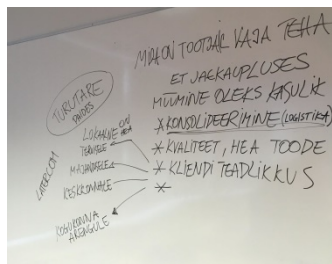 MIDA ON TOOTJAL VAJA TEHA
ET JAEKAUPLUSES
MÜÜMINE OLEKS KASULIK
* KONSOLIDEERIMINE (LOGISTIKA)
* KVALITEET, HEA TOODE
* KLIENDI TEADLIKKUS
*
TURUTARE
PAIDES
LOKAALNE ON HEA
TERVISELE
MAJANDUSELE
KESKKONNALE
KOGUKONNA
ARENGULE